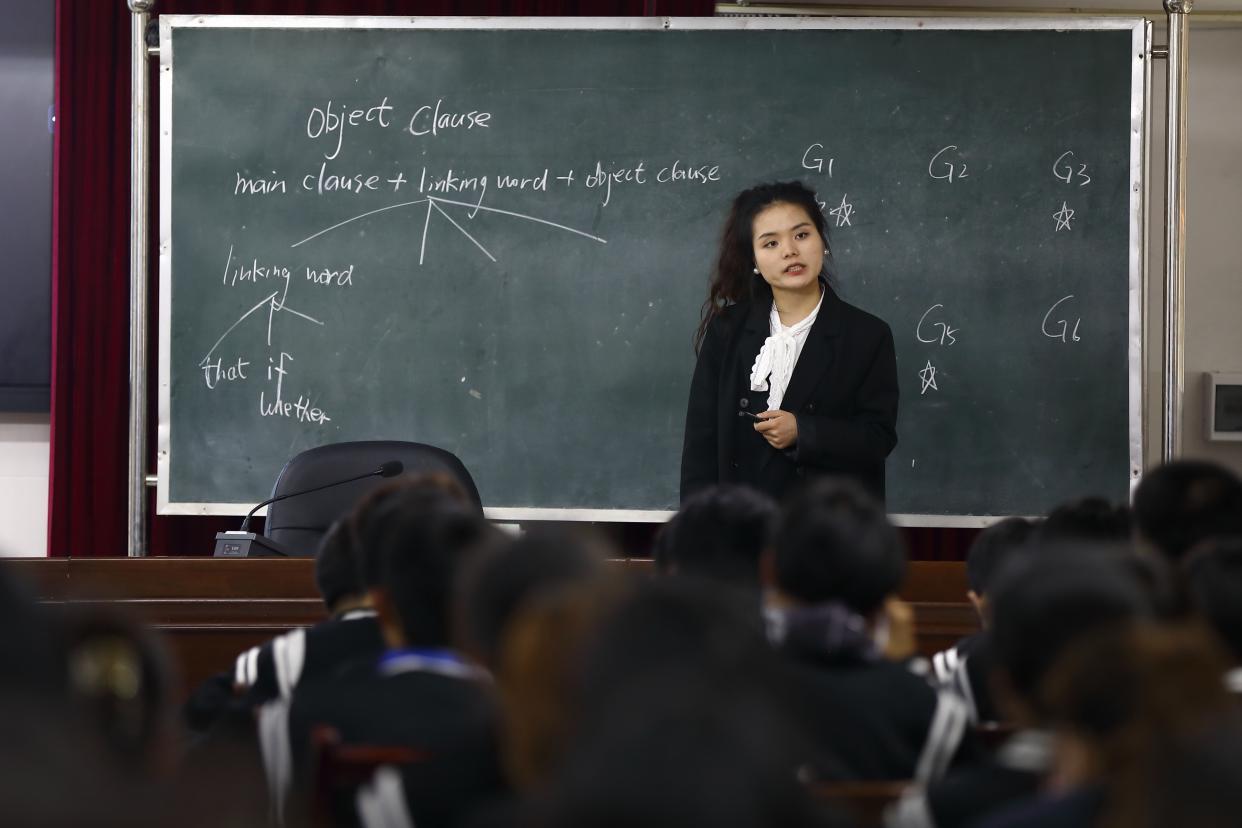 Object Clause
main clause + linking word + object clause
linking word
that if
whether
G1 G2 G3
G5 G6